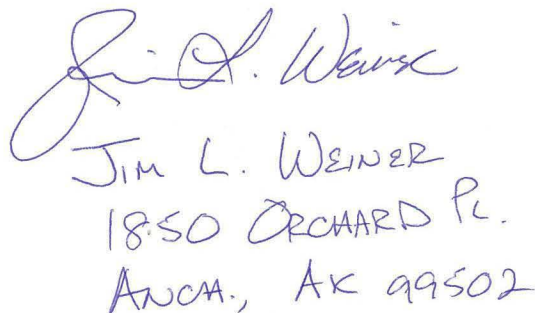 Jim L. Weiner
JIM L. WEINER
1850 ORCHARD PL.
ANCH., AK 99502